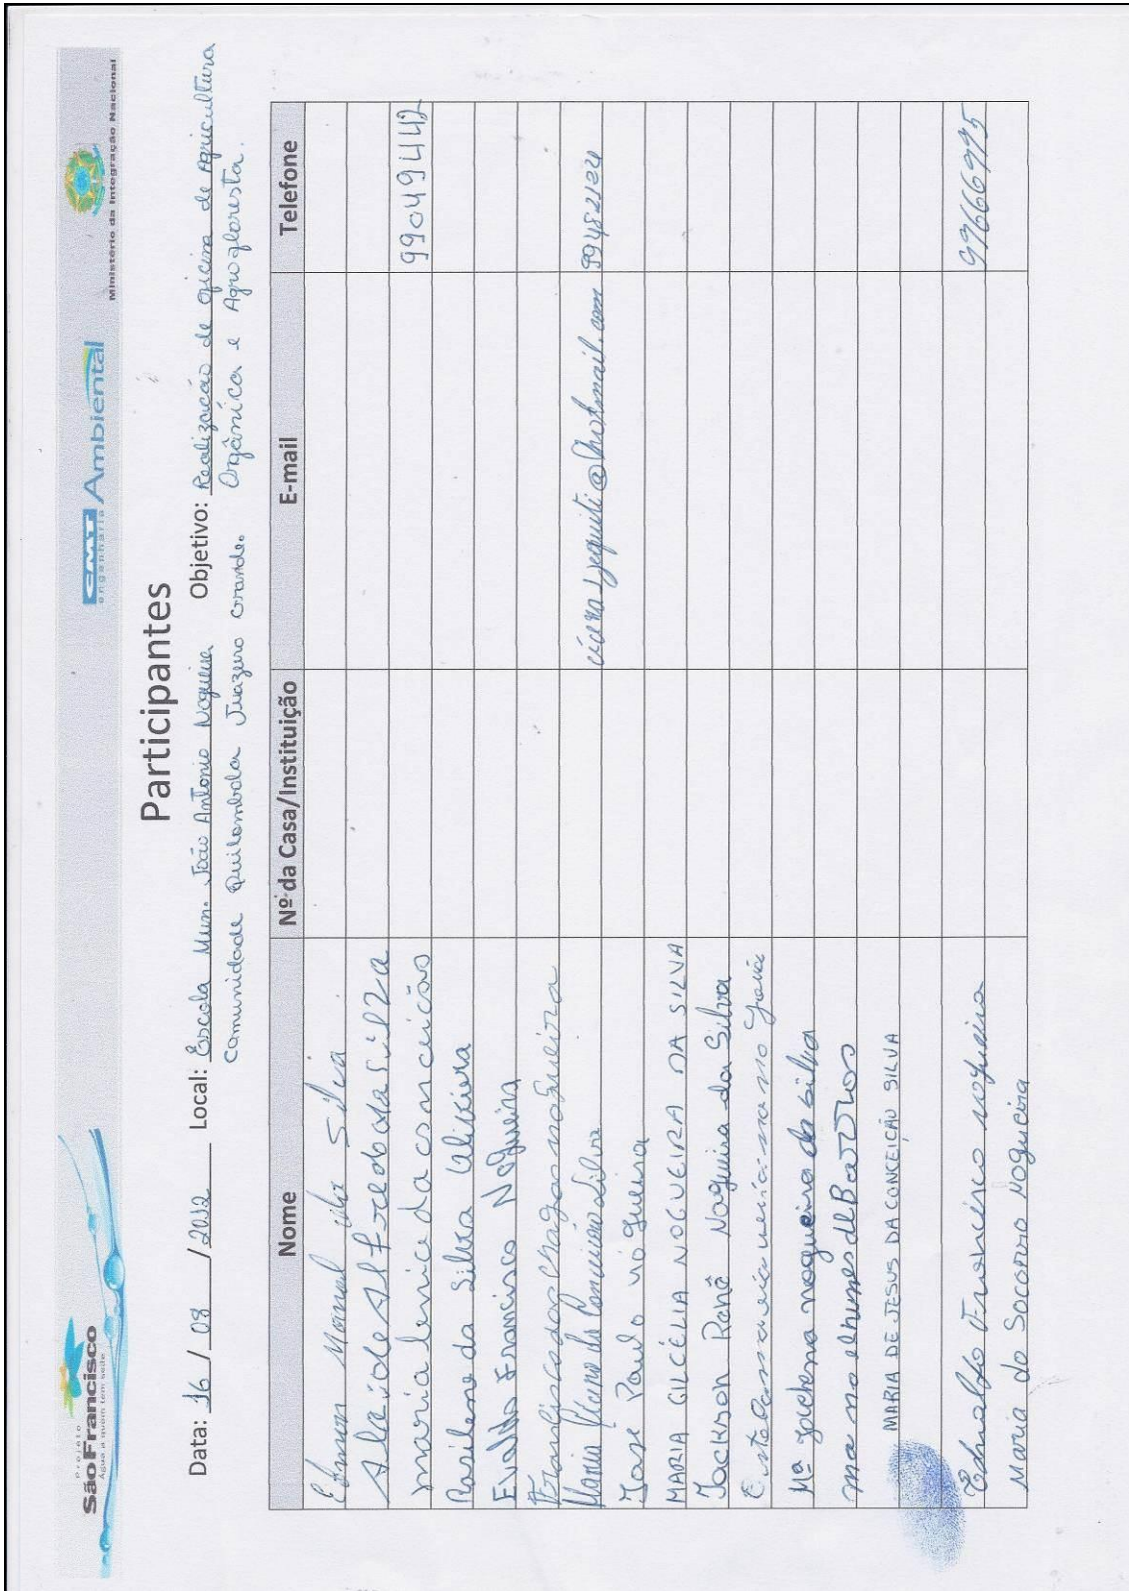 Projeto
São Francisco
Água a quem tem sede
CMT
engenharia
Ambiental
Ministério da Integração Nacional
Participantes
Data: 16 / 08 / 2012 Local: Escola Mun. João Antonio Nogueira Objetivo: Realização de oficina de Agricultura
Comunidade Quilombola Juazeiro Grande. Orgânica e Agrofloresta.
Nome Nº da Casa/Instituição E-mail Telefone
Manoel da Silva
Alaide Alfredo da Silza
maria lenice da comceicão 99049442
Rosilene da Silva Oliviera
Evaldo Francisco Nogueira
Fransisca das Chagas nogueira
Maria da Comceicão Silva @hotmail.com 99482124
Jose Paulo nogueira
MARIA GILCÉLIA NOGUEIRA DA SILVA
Jackson Renê Nogueira da Silva
Mª nogueira da silva
MARIA DE JESUS DA CONCEIÇÃO SILVA
Francisco nogueira 99666975
Maria do Socorro Nogueira